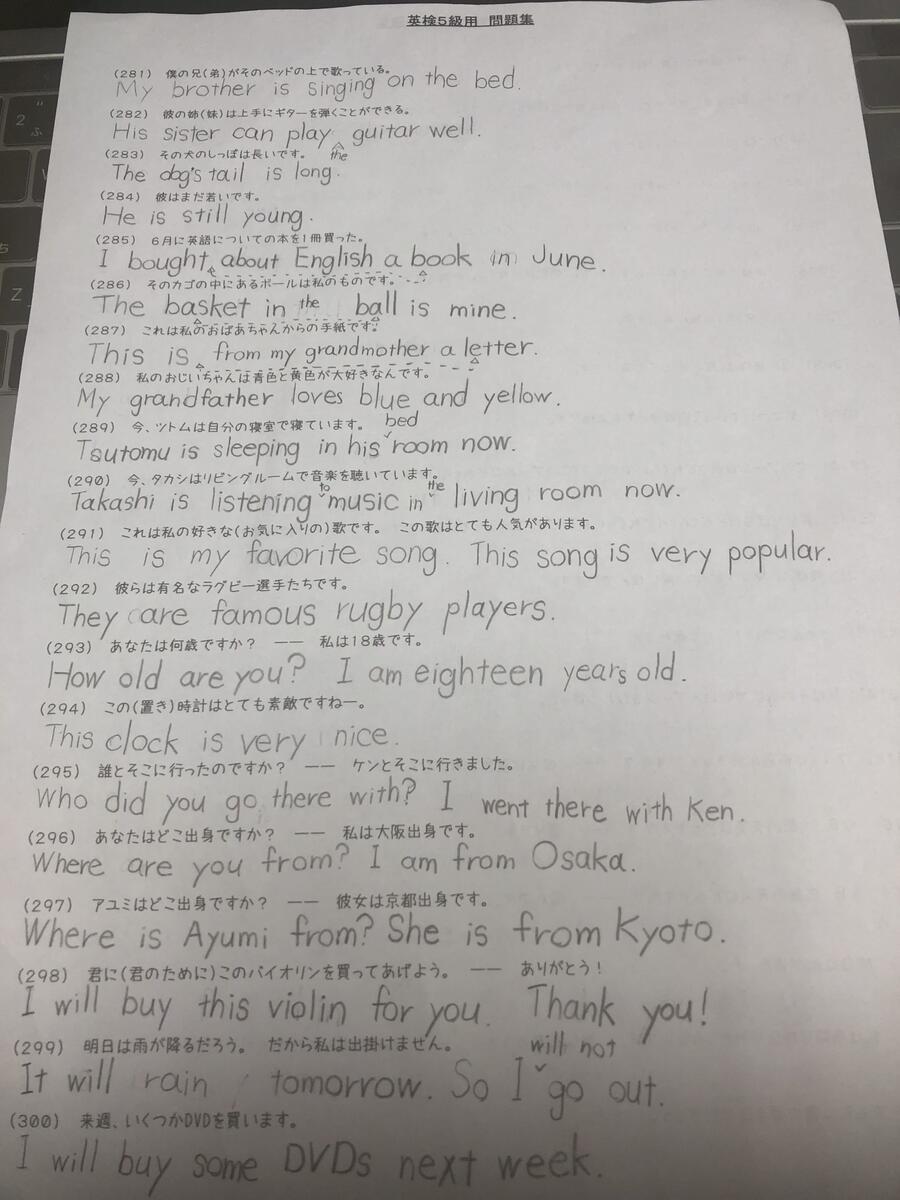 英検5級用 問題集
(281) 僕の兄(弟)がそのベッドの上で歌っている。
My brother is singing on the bed.
(282) 彼の姉(妹)は上手にギターを弾くことができる。
His sister can play guitar well.
the
(283) その犬のしっぽは長いです。
The dog's tail is long.
(284) 彼はまだ若いです。
He is still young.
(285) 6月に英語についての本を1冊買った。
I bought about English a book in June.
(286) そのカゴの中にあるボールは私のものです。
The basket in the ball is mine.
(287) これは私のおばあちゃんからの手紙です。
This is from my grandmother a letter.
(288) 私のおじいちゃんは青色と黄色が大好きなんです。
My grandfather loves blue and yellow.
(289) 今、ツトムは自分の寝室で寝ています。
bed
Tsutomu is sleeping in his room now.
(290) 今、タカシはリビングルームで音楽を聴いています。
to the
Takashi is listening music in living room now.
(291) これは私の好きな(お気に入りの)歌です。 この歌はとても人気があります。
This is my favorite song. This song is very popular.
(292) 彼らは有名なラグビー選手たちです。
They are famous rugby players.
(293) あなたは何歳ですか? ―― 私は18歳です。
How old are you? I am eighteen years old.
(294) この(置き)時計はとても素敵ですねー。
This clock is very nice.
(295) 誰とそこに行ったのですか? ―― ケンとそこに行きました。
Who did you go there with? I went there with Ken.
(296) あなたはどこ出身ですか? ―― 私は大阪出身です。
Where are you from? I am from Osaka.
(297) アユミはどこ出身ですか? ―― 彼女は京都出身です。
Where is Ayumi from? She is from Kyoto.
(298) 君に(君のために)このバイオリンを買ってあげよう。 ―― ありがとう!
I will buy this violin for you. Thank you!
(299) 明日は雨が降るだろう。 だから私は出掛けません。
will not
It will rain tomorrow. So I go out.
(300) 来週、いくつかDVDを買います。
I will buy some DVDs next week.